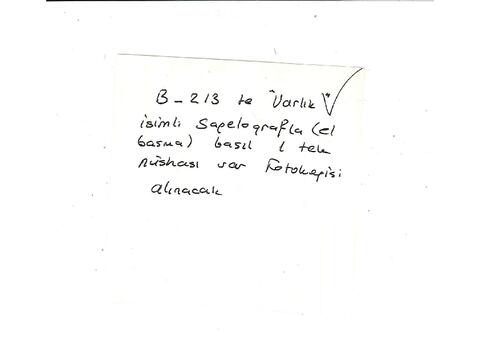 B-213 te "Varlık"
isimli Şapelografla (el
basma) basıl 1 tek
nüshası var Fotokopisi
alınacak